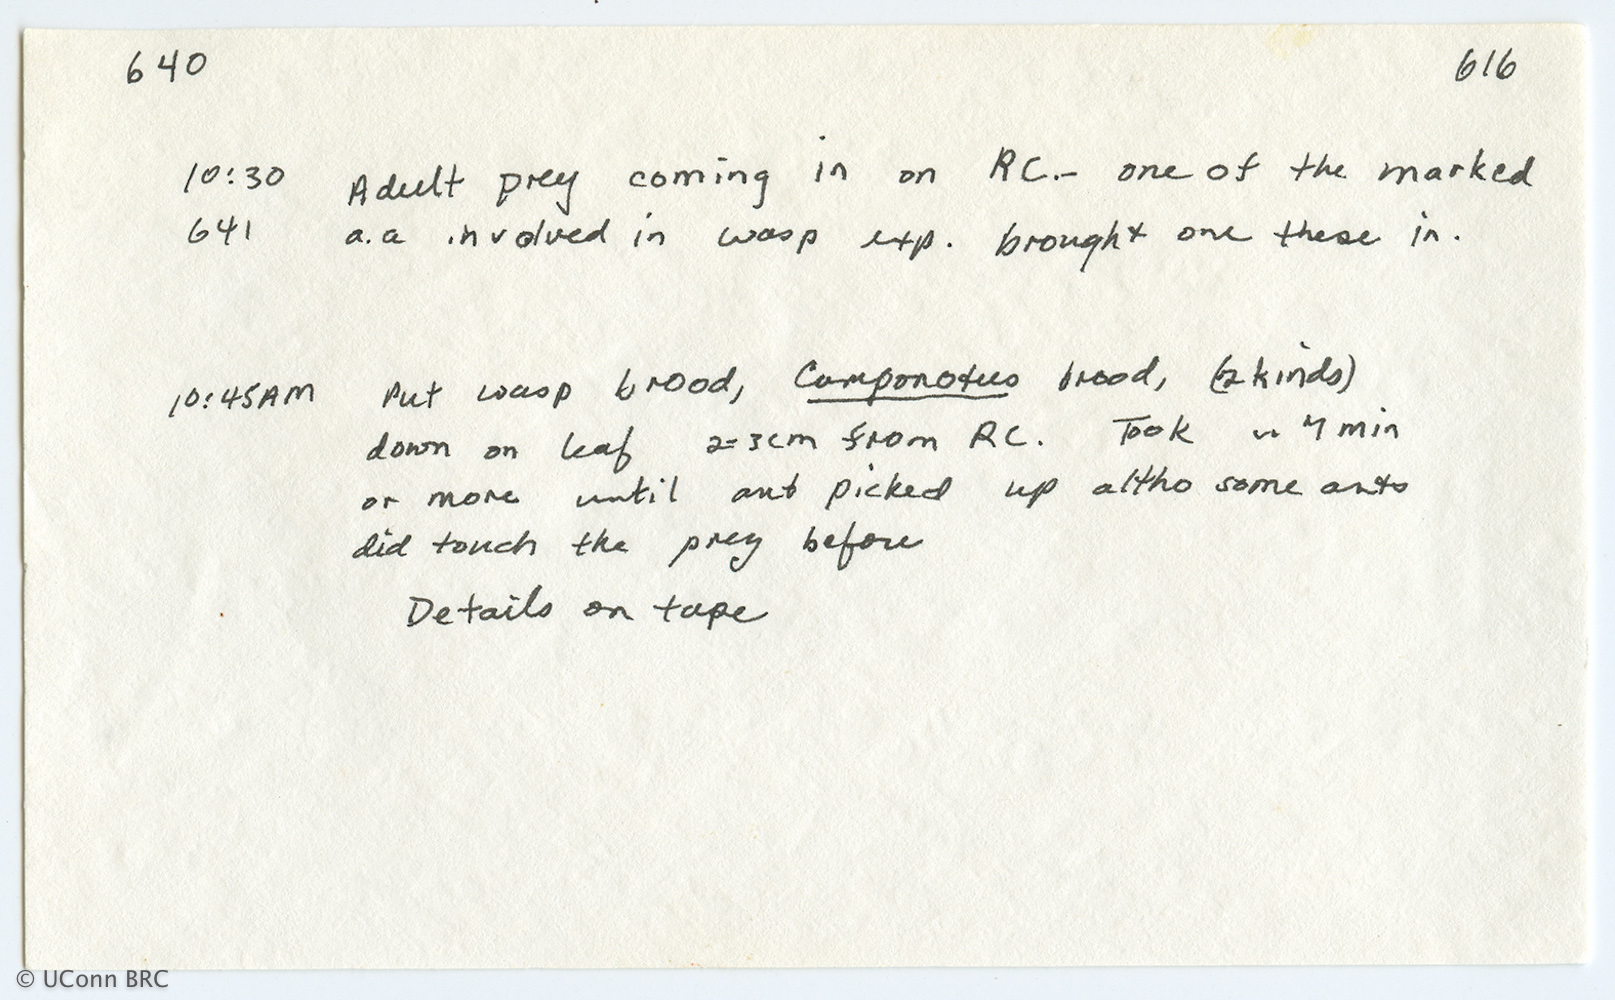 640 616
10:30 Adult prey coming in on RC.- one of the marked
641 a.a involved in wasp exp. brought one these in.
10:45AM Put wasp brood, Camponotus brood, (2 kinds)
down on leaf 2-3cm from RC. Took ~ 4 min
or more until ant picked up altho some ants
did touch the prey before
Details on tape
© UConn BRC